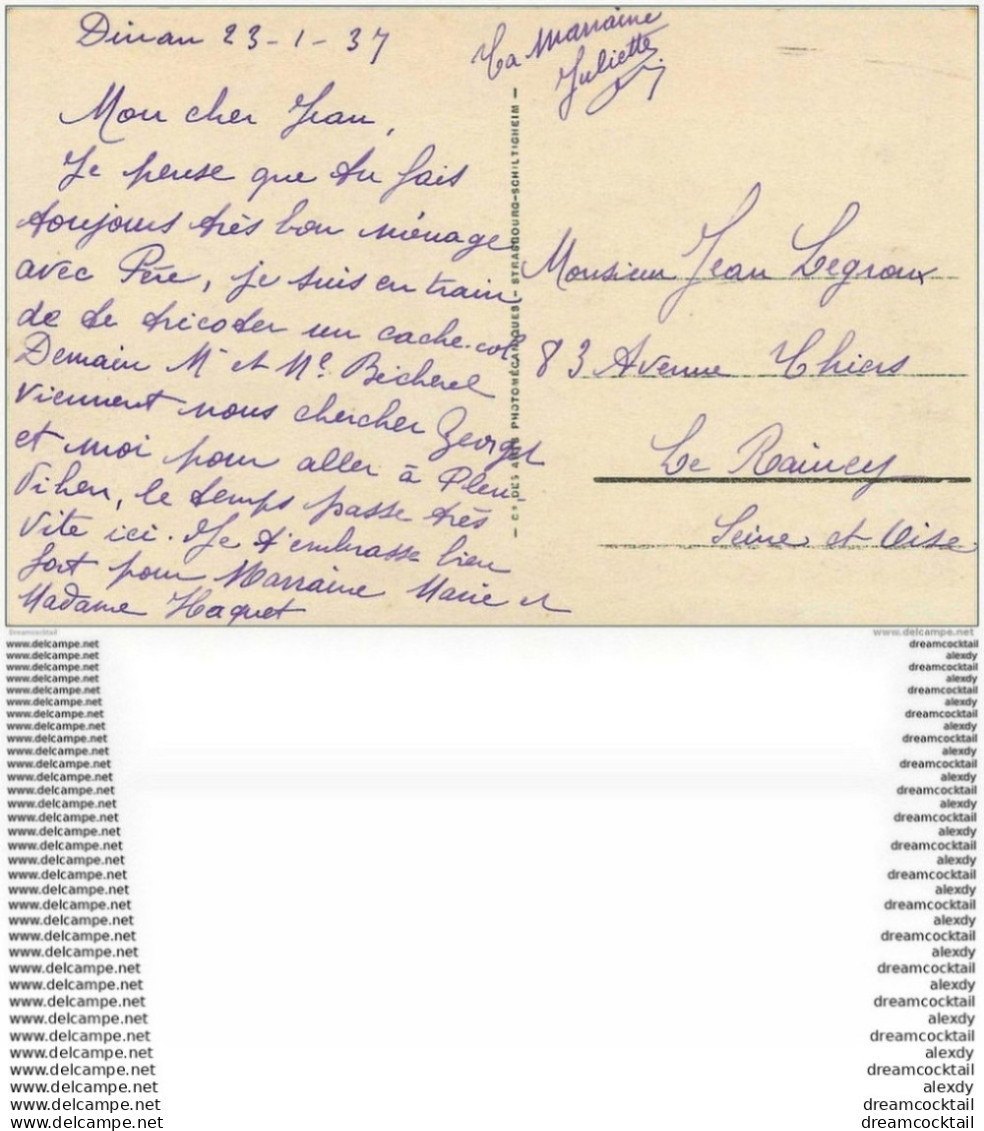 Dinan 23-1-37
Mon cher Jean,
Je pense que tu fais
toujours très bon ménage
avec Père, je suis en train
de te tricoter un cache-col
Demain Mr et Me Bécherel
viennent nous chercher
et moi pour aller à Pleu-
dihen, le temps passe très
vite ici. Je t'embrasse bien
fort pour Marraine Marie et
Madame Haquet
Ta Marraine
Juliette
- Cie DES ARTS PHOTOMÉCANIQUES - STRASBOURG-SCHILTIGHEIM -
Monsieur Jean Legroux
83 Avenue Thiers
Le Raincy
Seine et Oise
Dreamcocktail
www.delcampe.net
www.delcampe.net dreamcocktail
www.delcampe.net alexdy
www.delcampe.net dreamcocktail
www.delcampe.net alexdy
www.delcampe.net dreamcocktail
www.delcampe.net alexdy
www.delcampe.net dreamcocktail
www.delcampe.net alexdy
www.delcampe.net dreamcocktail
www.delcampe.net alexdy
www.delcampe.net dreamcocktail
www.delcampe.net alexdy
www.delcampe.net dreamcocktail
www.delcampe.net alexdy
www.delcampe.net dreamcocktail
www.delcampe.net alexdy
www.delcampe.net dreamcocktail
www.delcampe.net alexdy
www.delcampe.net dreamcocktail
www.delcampe.net alexdy
www.delcampe.net dreamcocktail
www.delcampe.net alexdy
www.delcampe.net dreamcocktail
www.delcampe.net alexdy
www.delcampe.net dreamcocktail
www.delcampe.net alexdy
www.delcampe.net dreamcocktail
www.delcampe.net alexdy
www.delcampe.net dreamcocktail
www.delcampe.net alexdy
www.delcampe.net dreamcocktail
www.delcampe.net alexdy
www.delcampe.net dreamcocktail
www.delcampe.net dreamcocktail